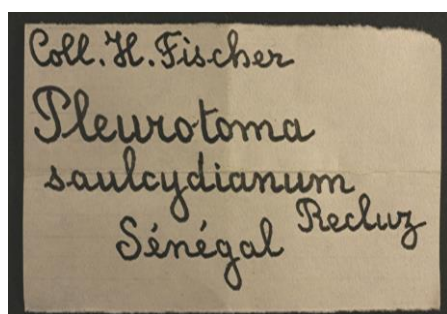 Coll. H. Fischer
Pleurotoma
saulcydianum
Recluz
Sénégal